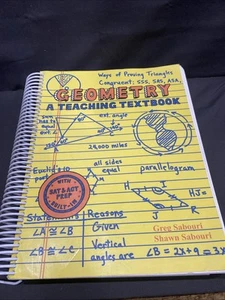 Ways of Proving Triangles
Congruent: SSS, SAS, ASA,
GEOMETRY
A TEACHING TEXTBOOK
ext. angle
24,000 miles
Euclid's 10
all sides
equal
parallelogram
WITH
SAT & ACT
PREP
BUILT-IN
H
HJ =
J
R
Statements
Reasons
∠A ≅ ∠B
Given
Greg Sabouri
Shawn Sabouri
∠B ≅ ∠C
Vertical
angles are
∠B = 2x+9 = 3x